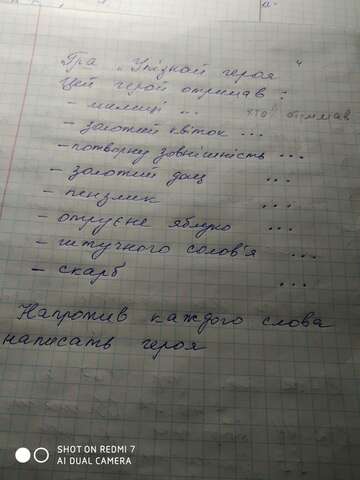 Гра „Упізнай героя"
Цей герой отримав:
- милиці ...
- золотий квіток ...
- потворну зовнішність ...
- золотий дощ ...
- пензлик ...
- отруєне яблуко ...
- штучного солов'я ...
- скарб ...
Напротив каждого слова
написать героя
SHOT ON REDMI 7
AI DUAL CAMERA